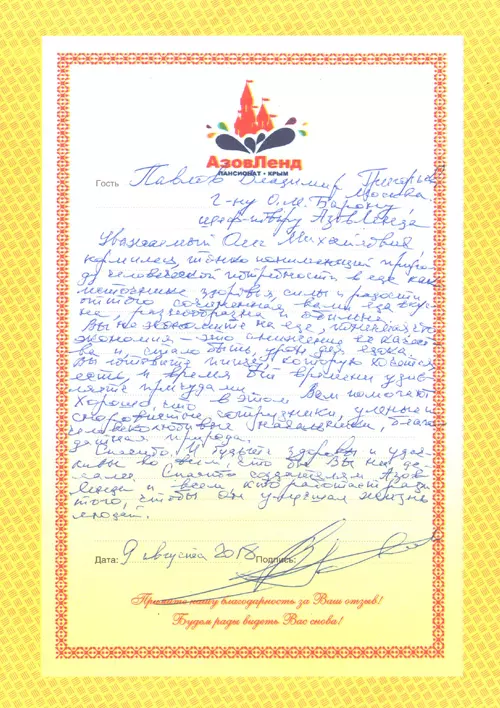 АзовЛенд
ПАНСИОНАТ • КРЫМ
Гость Павлов Владимир Григорьевич
Москва
Г-ну О.М. Барону,
шеф-повару АзовЛенда
Уважаемый Олег Михайлович,
кормилец, тонко понимающий приро-
ду человеческой потребности в еде как
источнике здоровья, силы и радости
оттого сочиненная вами еда вкус-
на, разнообразна и обильна.
Вы не экономите на еде, понимая, что
экономия – это снижение её качест-
ва и, стало быть, урон для едока.
Вы готовите пищу, которую хочется
есть, и время от времени удив-
ляете причудами.
Хорошо, что в этом Вам помогают
сноровистые сотрудники, умные и
человеколюбивые начальники, благо-
датная природа.
Спасибо. И будьте здоровы и удач-
ливы ко всем, что бы Вы ни де-
лали. Спасибо создателям Азов-
Ленда и всем, кто работает ради
того, чтобы он улучшал жизнь
людей.
Дата: 9 августа 2018 Подпись:
Примите нашу благодарность за Ваш отзыв!
Будем рады видеть Вас снова!